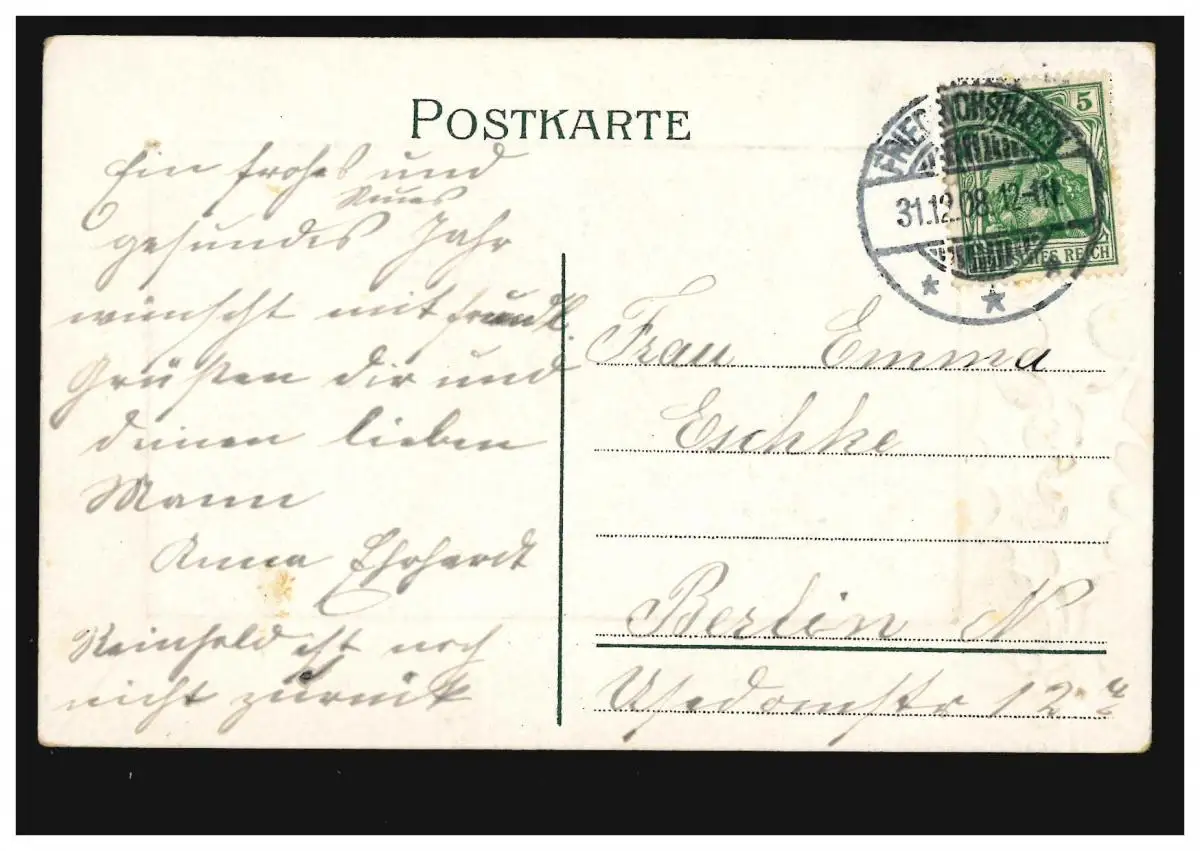 POSTKARTE
Ein frohes und
Neues
gesundes Jahr
wünscht mit freundl.
Grüßen dir und
deinen lieben
Mann
Anna Ehrhardt
Reinhold ist noch
nicht zurück
5
DEUTSCHES REICH
FRIEDRICHSHAGEN
31.12.08. 12-1N.
Frau Emma
Eschke
Berlin N
Usedomstr 12